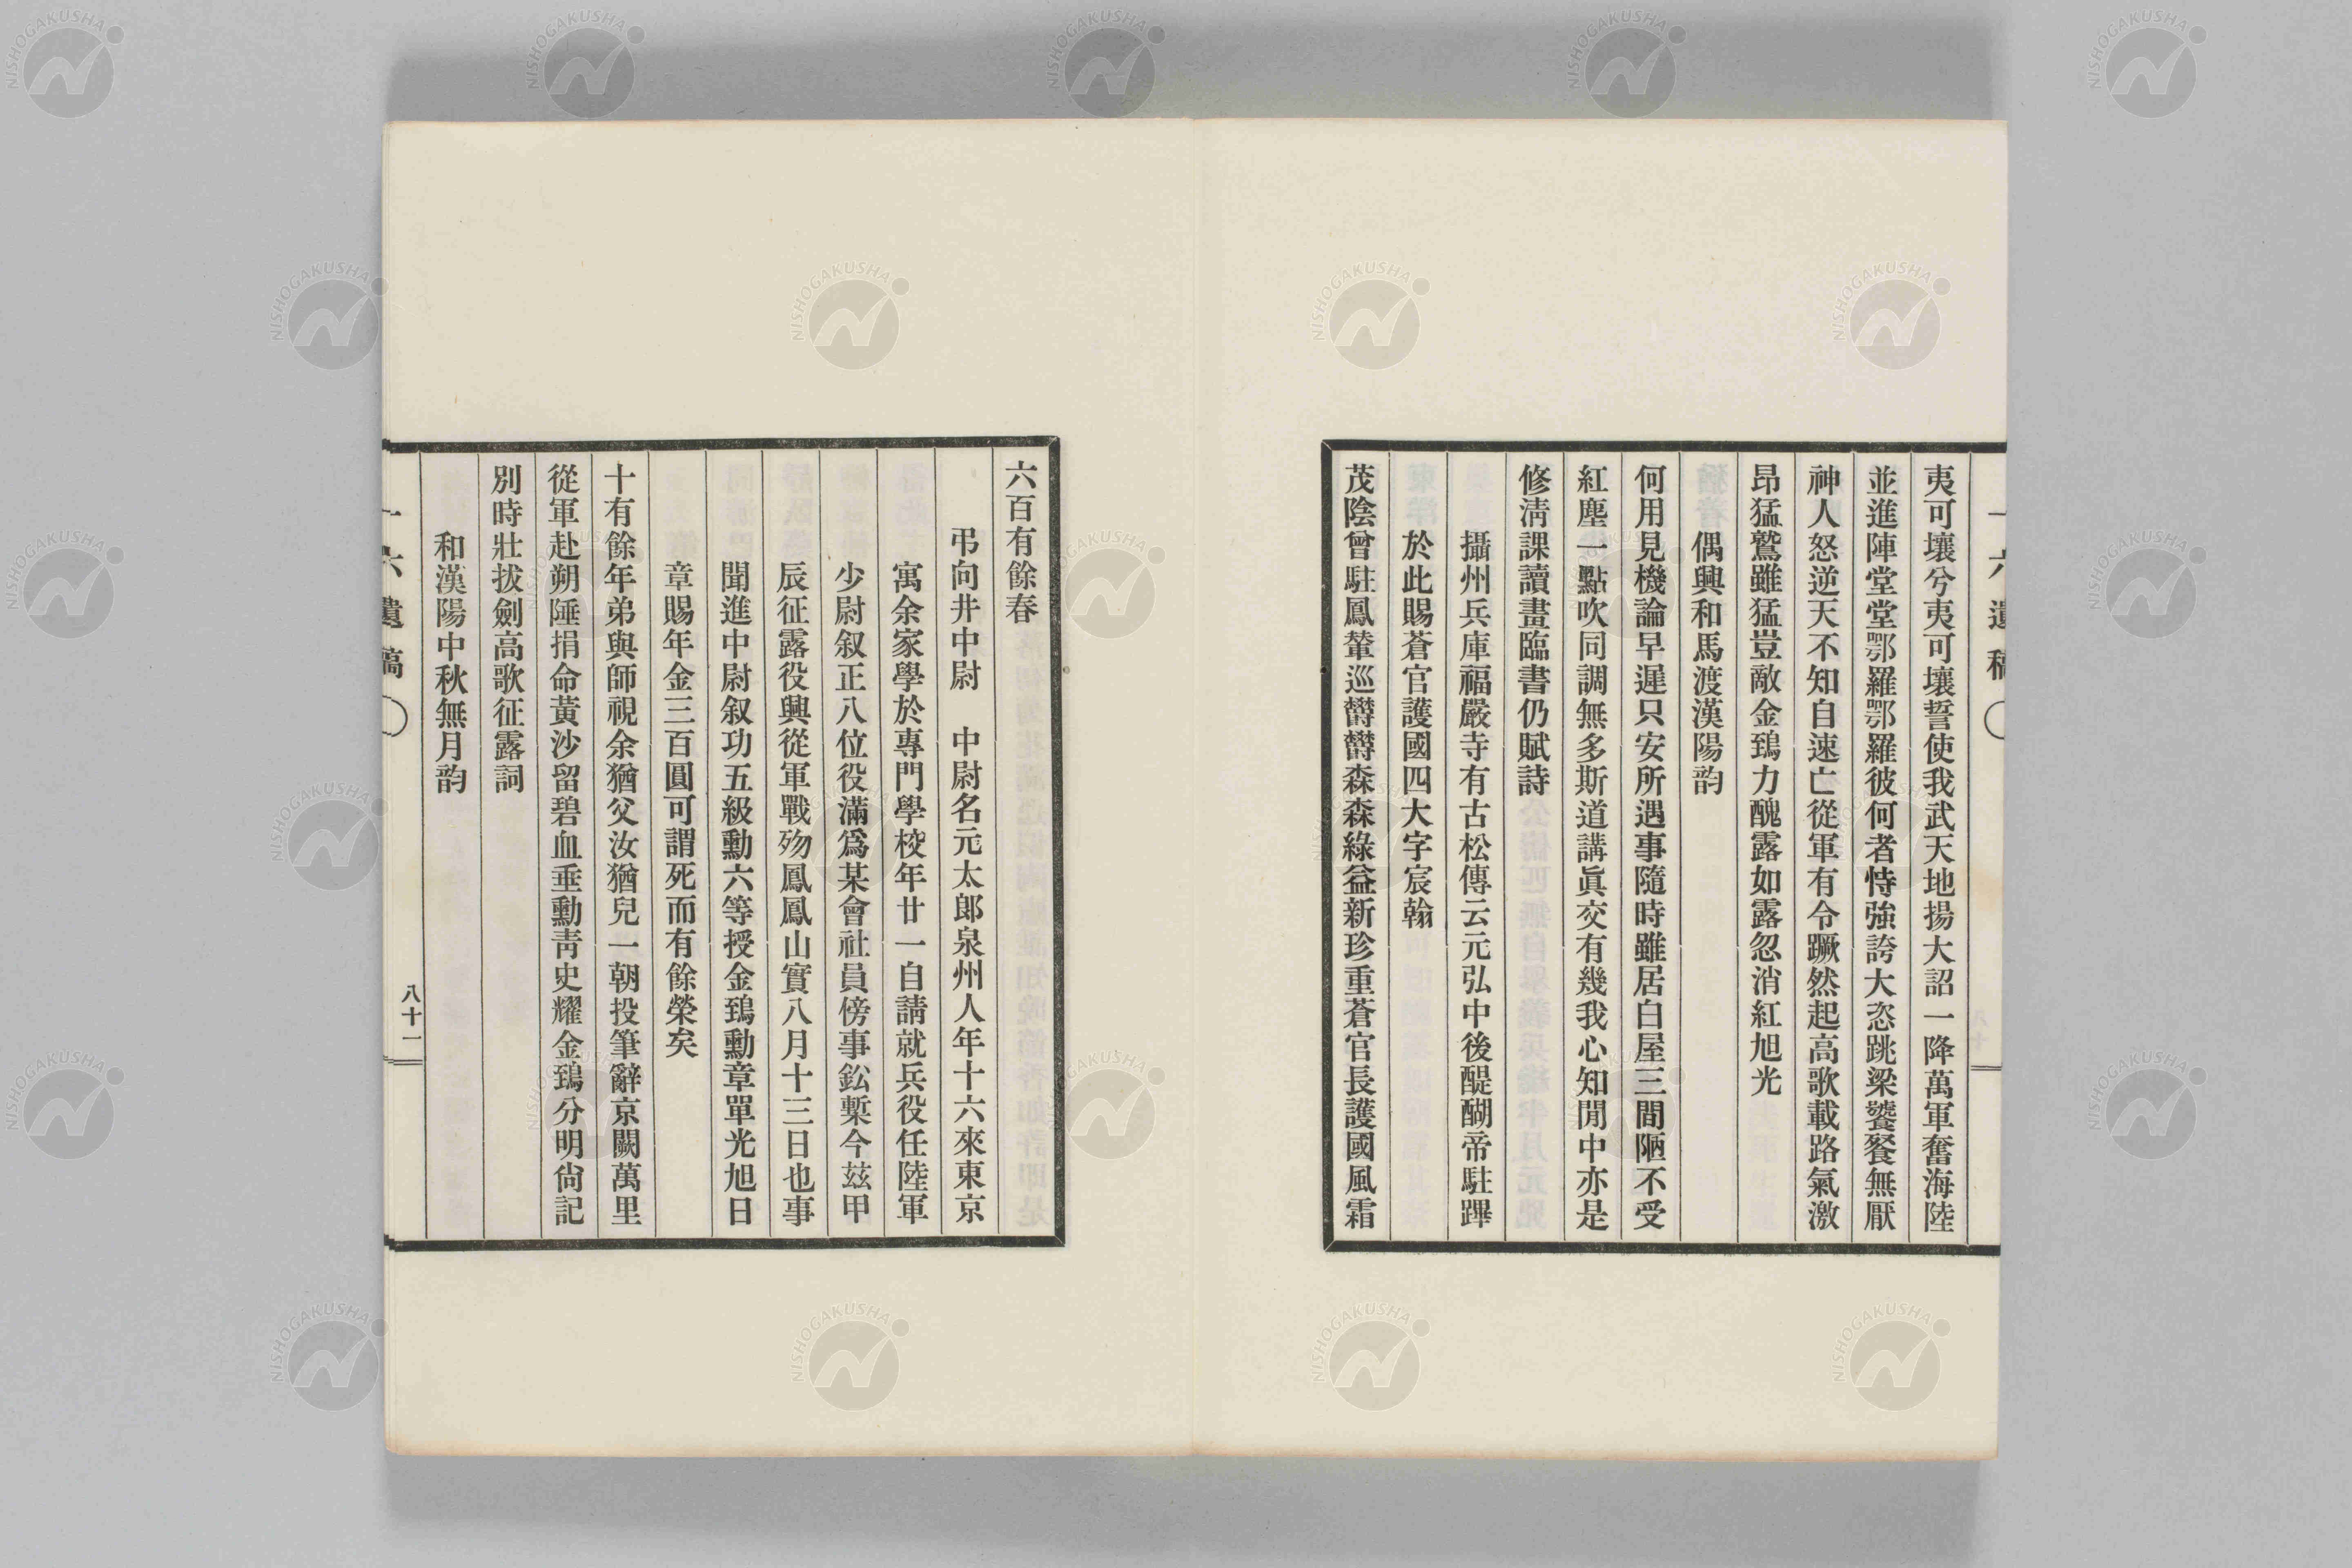 夷可壤兮夷可壤誓使我武天地揚大詔一降萬軍奮海陸
並進陣堂堂鄂羅鄂羅彼何者恃強誇大恣跳梁饕餮無厭
神人怒逆天不知自速亡從軍有令蹶然起高歌載路氣激
昂猛鷲雖猛豈敵金鵄力醜露如露忽消紅旭光
偶興和馬渡漢陽韵
何用見機論早遲只安所遇事隨時雖居白屋三間陋不受
紅塵一點吹同調無多斯道講眞交有幾我心知閒中亦是
修淸課讀畫臨書仍賦詩
攝州兵庫福嚴寺有古松傳云元弘中後醍醐帝駐蹕
於此賜蒼官護國四大字宸翰
茂陰曾駐鳳輦巡欝欝森森綠益新珍重蒼官長護國風霜
六百有餘春
弔向井中尉　中尉名元太郎泉州人年十六來東京
寓余家學於專門學校年廿一自請就兵役任陸軍
少尉叙正八位役滿爲某會社員傍事鈆槧今玆甲
辰征露役興從軍戰歿鳳鳳山實八月十三日也事
聞進中尉叙功五級勳六等授金鵄勳章單光旭日
章賜年金三百圓可謂死而有餘榮矣
十有餘年弟與師視余猶父汝猶兒一朝投筆辭京闕萬里
從軍赴朔陲捐命黃沙留碧血垂勳靑史耀金鵄分明尙記
別時壯拔劍高歌征露詞
和漢陽中秋無月韵
一六遺稿
八十一
NISHOGAKUSHA